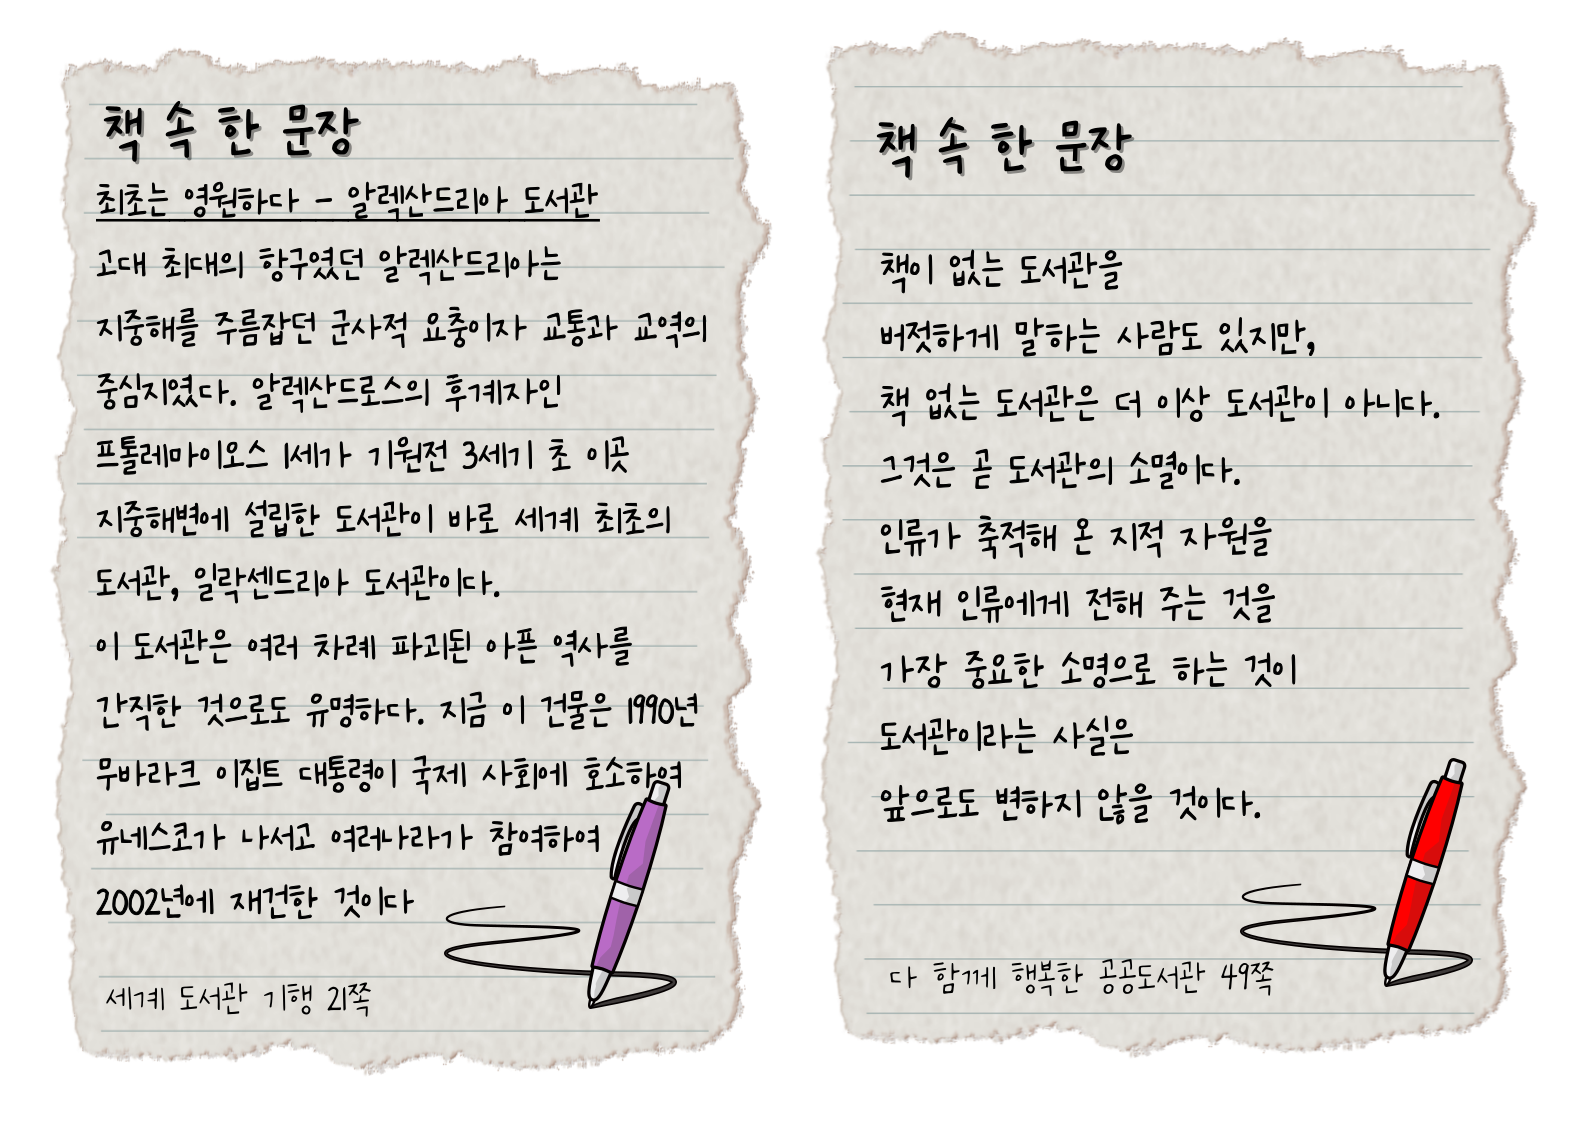 책 속 한 문장
최초는 영원하다 - 알렉산드리아 도서관
고대 최대의 항구였던 알렉산드리아는
지중해를 주름잡던 군사적 요충이자 교통과 교역의
중심지였다. 알렉산드로스의 후계자인
프톨레마이오스 1세가 기원전 3세기 초 이곳
지중해변에 설립한 도서관이 바로 세계 최초의
도서관, 일락센드리아 도서관이다.
이 도서관은 여러 차례 파괴된 아픈 역사를
간직한 것으로도 유명하다. 지금 이 건물은 1990년
무바라크 이집트 대통령이 국제 사회에 호소하여
유네스코가 나서고 여러나라가 참여하여
2002년에 재건한 것이다
세계 도서관 기행 21쪽
책 속 한 문장
책이 없는 도서관을
버젓하게 말하는 사람도 있지만,
책 없는 도서관은 더 이상 도서관이 아니다.
그것은 곧 도서관의 소멸이다.
인류가 축적해 온 지적 자원을
현재 인류에게 전해 주는 것을
가장 중요한 소명으로 하는 것이
도서관이라는 사실은
앞으로도 변하지 않을 것이다.
다 함께 행복한 공공도서관 49쪽